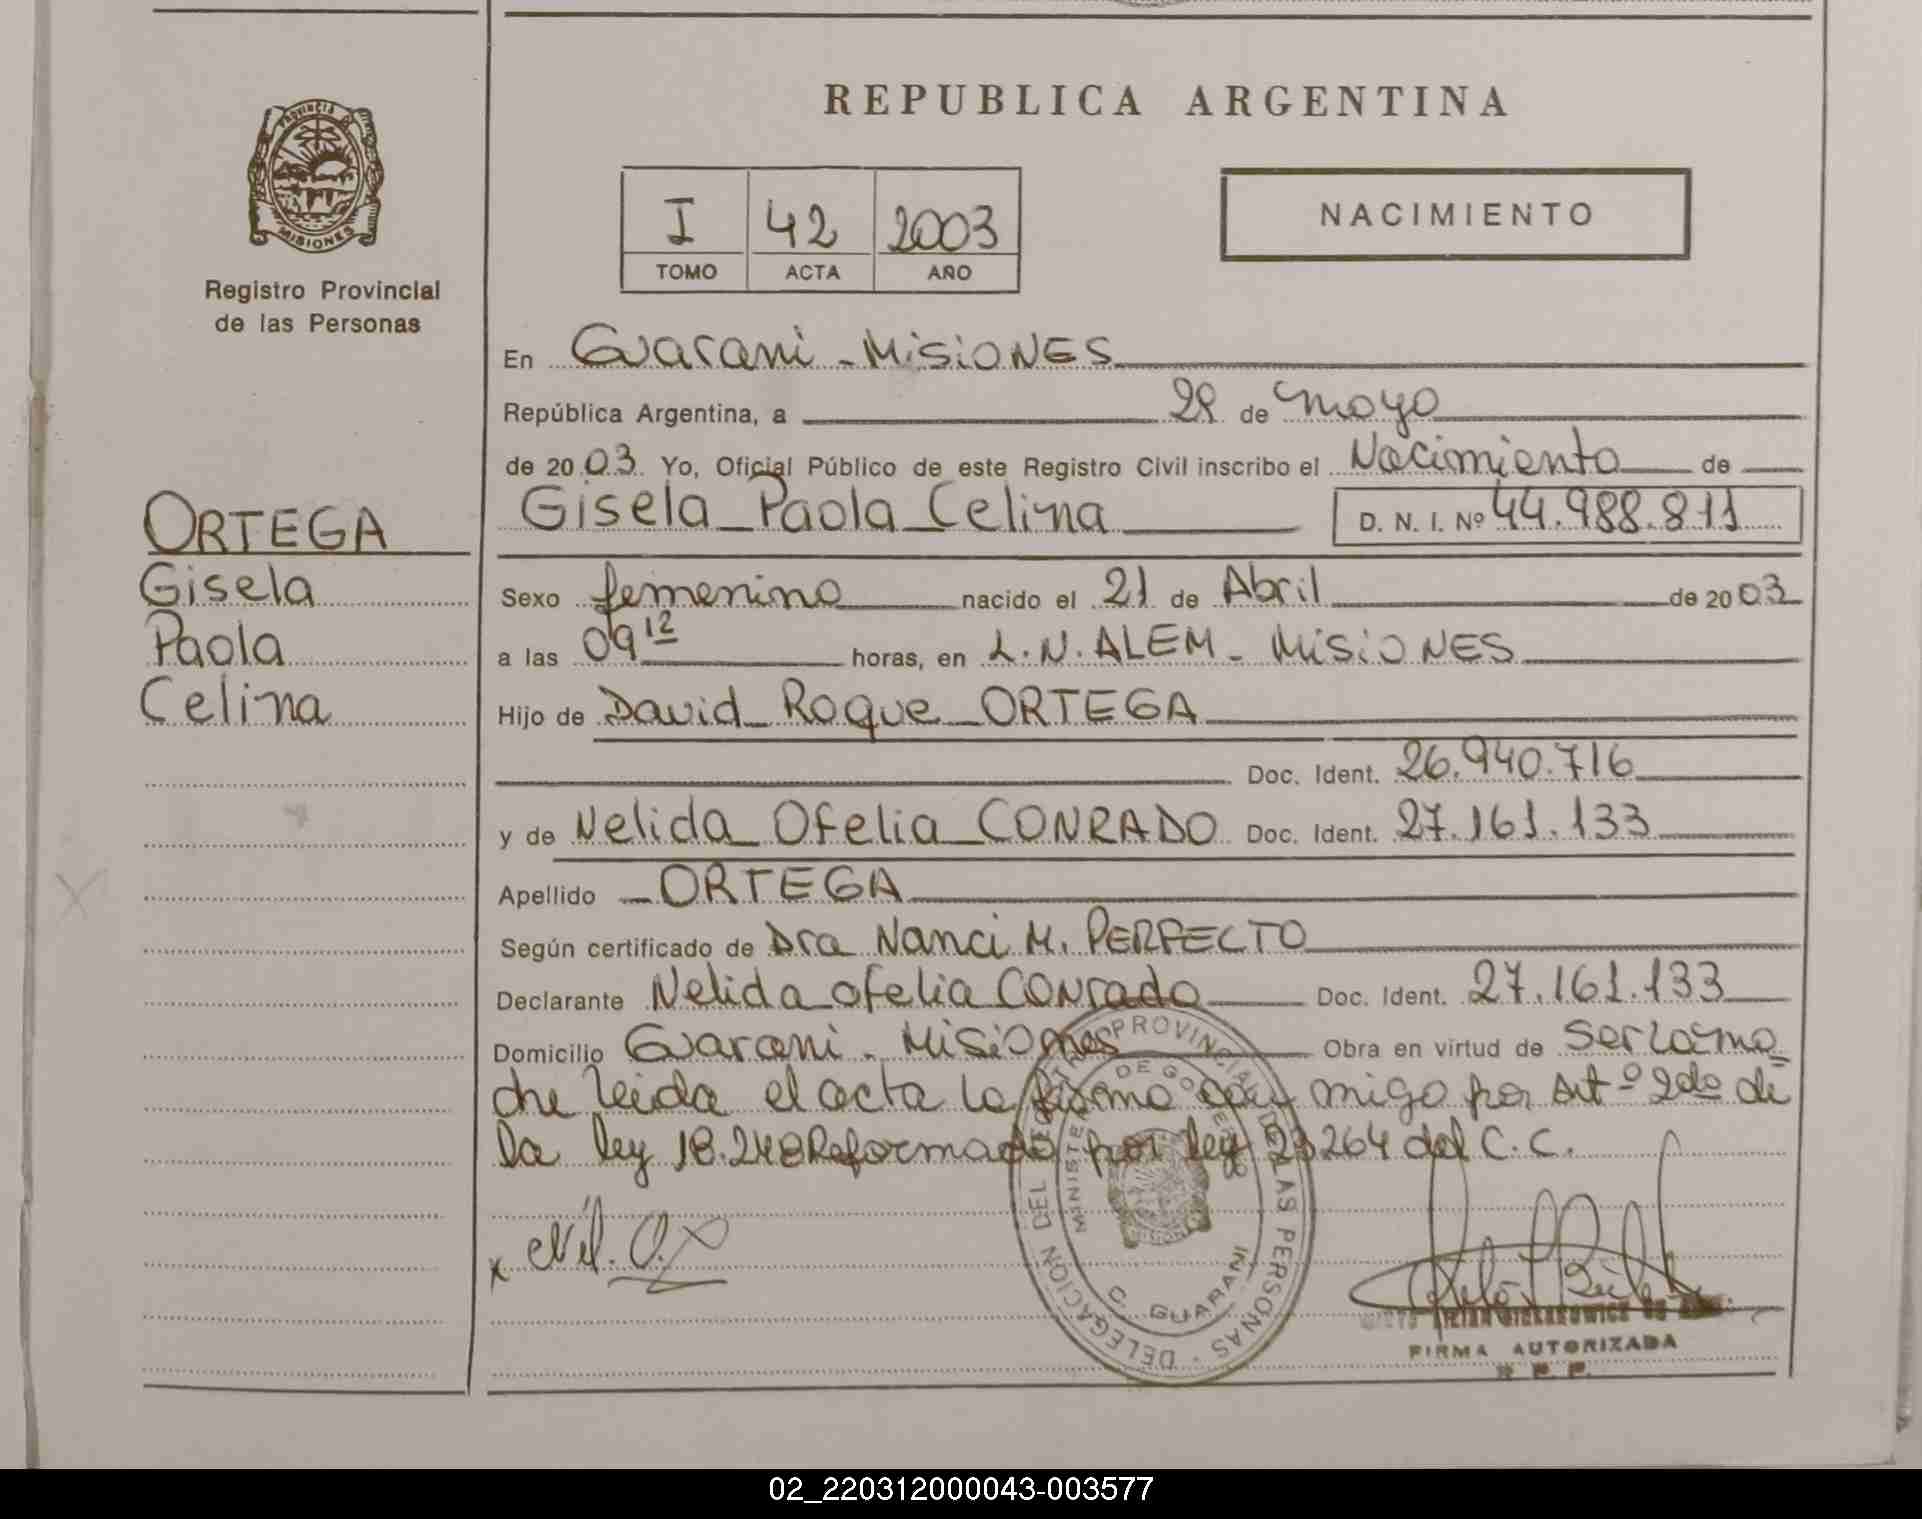 PROVINCIA DE
MISIONES
Registro Provincial
de las Personas
ORTEGA
Gisela
Paola
Celina
REPUBLICA ARGENTINA
I 42 2003
TOMO ACTA AÑO
NACIMIENTO
En Guarani - MISIONES
República Argentina, a 28 de mayo
de 2003. Yo, Oficial Público de este Registro Civil inscribo el Nacimiento de
Gisela Paola Celina D. N. I. Nº 44.988.811
Sexo femenino nacido el 21 de Abril de 2003
a las 09 12 horas, en L.N. ALEM - MISIONES
Hijo de David Roque ORTEGA
Doc. Ident. 26.940.716
y de Nelida Ofelia CONRADO Doc. Ident. 27.161.133
Apellido ORTEGA
Según certificado de Dra Nanci M. PERFECTO
Declarante Nelida Ofelia CONrado Doc. Ident. 27.161.133
Domicilio Guarani - Misiones Obra en virtud de ser la ma=
dre leida el acta la firma con migo por Artº 2do de
la ley 18.248 Reformado por ley 23264 del C.C.
x Nél. O.
DELEGACION DEL REGISTRO PROVINCIAL DE LAS PERSONAS
MINISTERIO DE GOBIERNO
C. GUARANI
FIRMA AUTORIZADA
R. P. P.
02_220312000043-003577